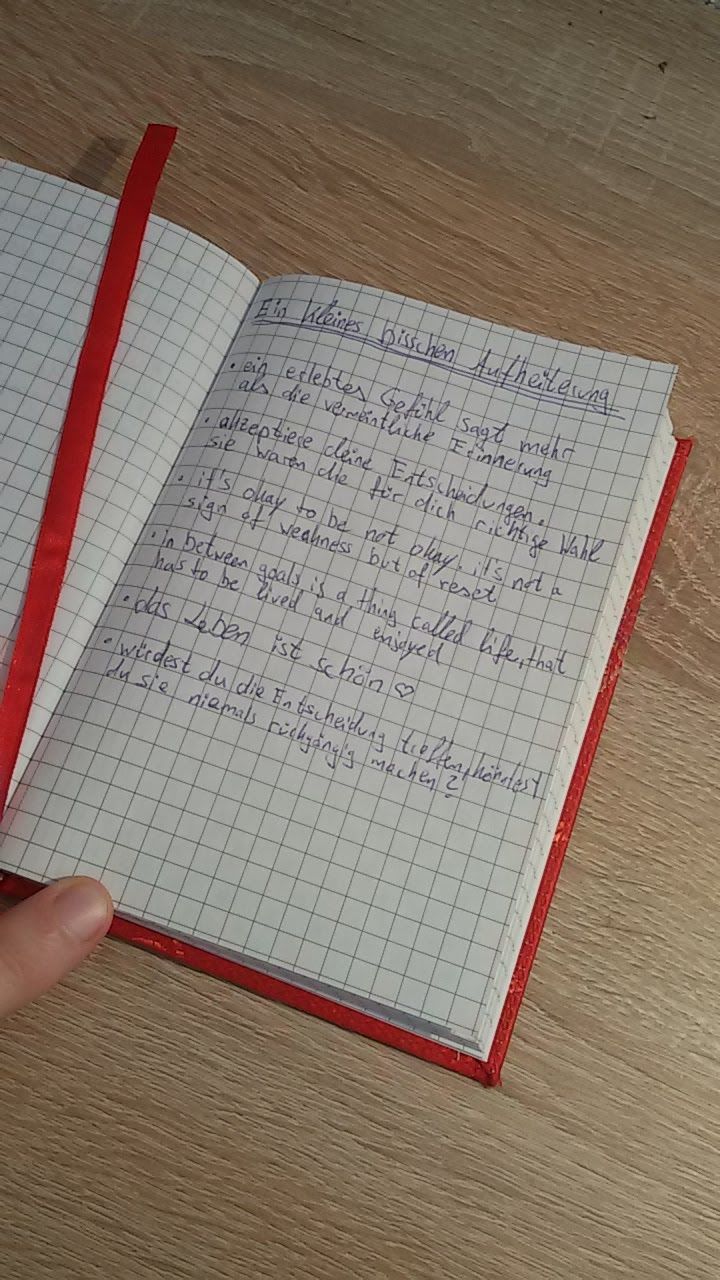 Ein kleines bisschen Aufheiterung
• ein erlebtes Gefühl sagt mehr
als die vermeintliche Erinnerung
• akzeptiere deine Entscheidungen.
sie waren die für dich richtige Wahl
• it's okay to be not okay. it's not a
sign of weakness but of reset
• in between goals is a thing called life, that
has to be lived and enjoyed
• das Leben ist schön ♡
• würdest du die Entscheidung treffen, könntest
du sie niemals rückgängig machen?